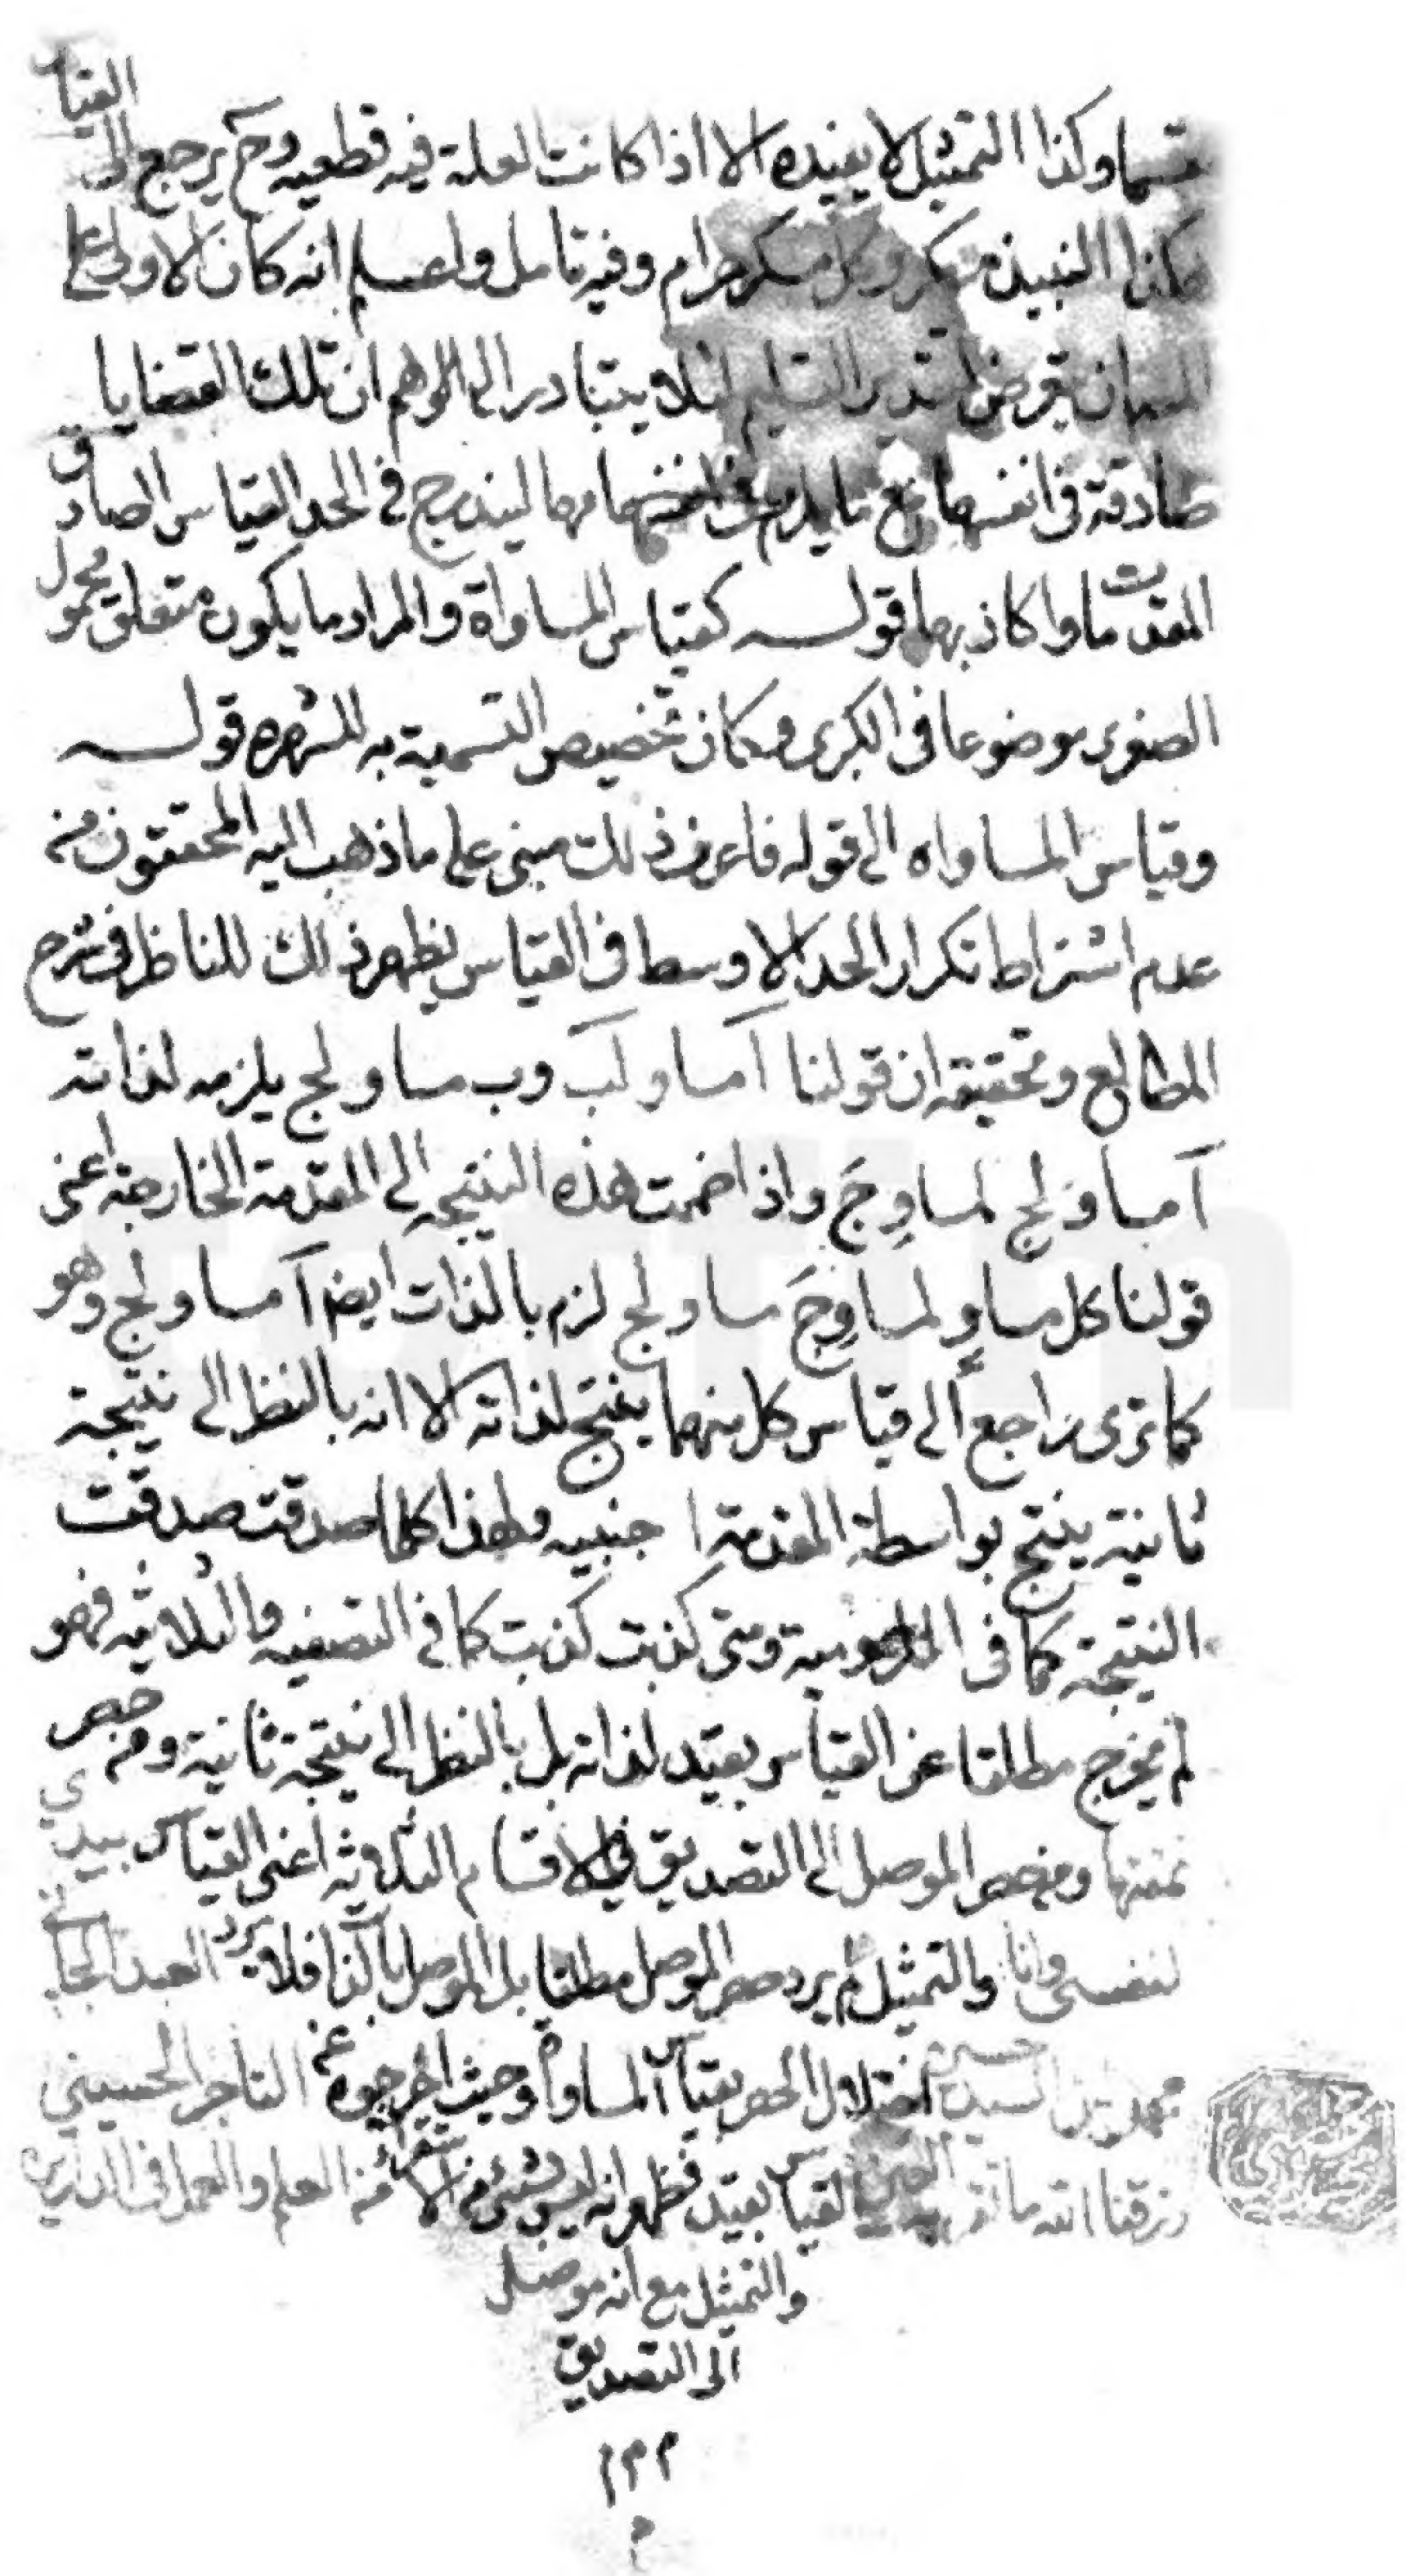 وكذا التمثيل لا يفيده الا اذا كانت العلة فيه قطعيه وح يرجع الى القياس
هكذا النبيذ مسكر وكل مسكر حرام وفيه تامل واعلم انه كان الاولى على
لئلا يتبادر الى الوهم ان تلك القضايا
صادقة فى انفسها مع ما يلزم عن انفسها ليندرج فى الحد القياس الصادق
المقدمات وا كاذبها قوله كقياس المساواة والمراد ما يكون متعلق محمول
الصغرى موضوعا فى الكبرى وكان تخصيص التسمية به للشهره قوله
وقياس المساواه الى قوله فاعرف ذلك مبنى على ما ذهب اليه المحققون من
عدم اشتراط تكرار الحد الاوسط فى القياس يظهر ذلك للناظر فى شرح
المطالع وتحقيقه ان قولنا آ مساو لب وب مساو لج يلزمه لذاته
آ مساو لج لمساو ج واذا ضمت هذه النتيجه الى المقدمة الخارجة اعنى
قولنا كل مساو لمساو ج مساو لج لزم بالذات ايضا آ مساو لج وهو
كما ترى راجع الى قياس كل منهما ينتج لذاته الا انه بالنظر الى نتيجة
ثانية ينتج بواسطة المقدمة ا جنبيه ولهذا كلما صدقت صدقت
النتيجة كما فى الملزومية ومتى كذبت كذبت كما فى النصفيه والثلاثيه فهو
لم يخرج مطلقا عن القياس بقيد لذاته بل بالنظر الى نتيجة ثانية ومن حصر
نمقتها الموصل الى التصديق فى الاقسام الثلاثه اعنى القياس بيدي
لنفسى وانا والتمثيل لم يرد حصر الموصل مطلقا بل الموصل بالذات فلا يرد العبد الجانى
السيد حسين اختلال الحصر بقياس المساواة وحيث اخرجوه عن التاجر الحسيني
رزقنا الله القياس بقيد فظهر انه ليس بشئ من الاستقراء العلم والعمل فى الدارين
والتمثيل مع انه موصل
الى التصديق
م م م
م